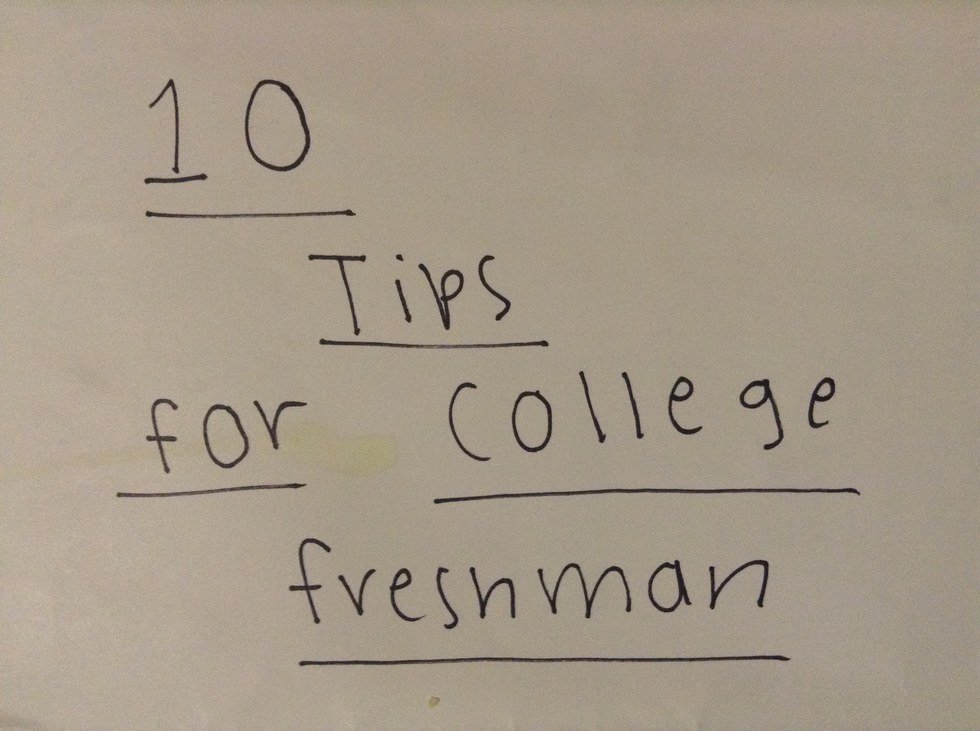 10
Tips
for College
freshman